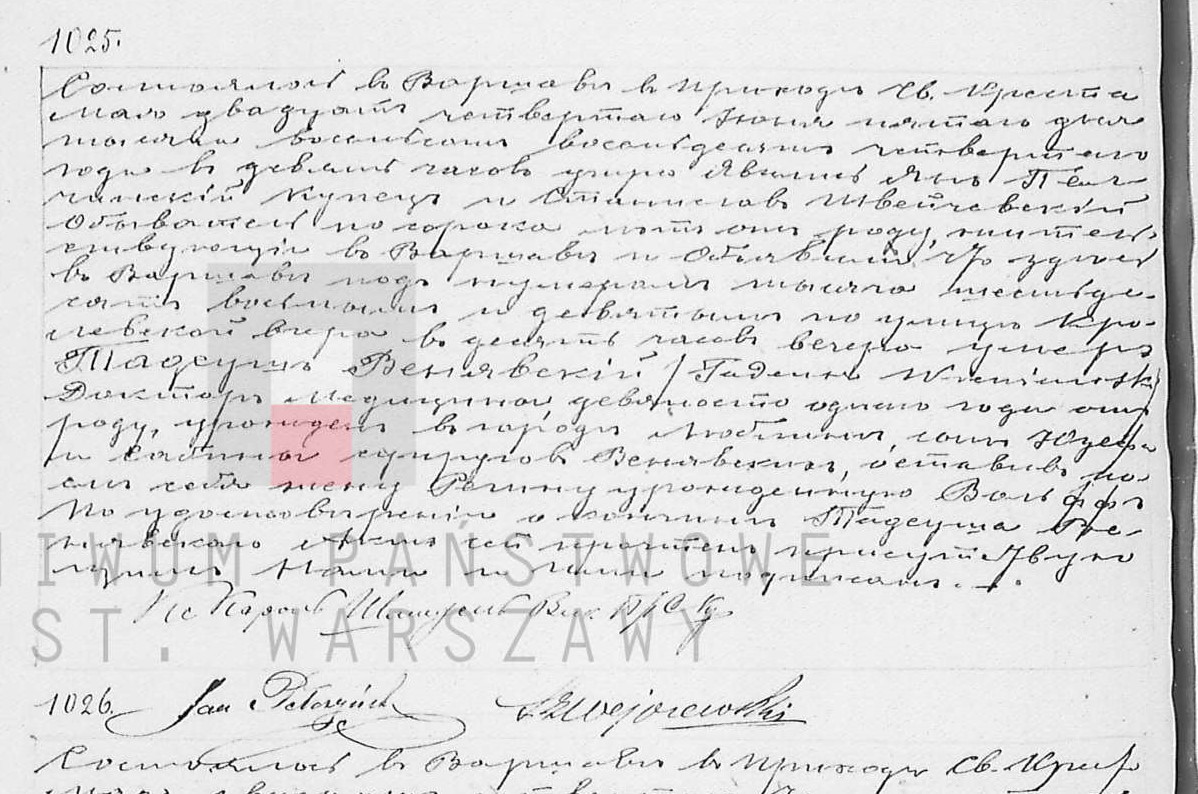 1025.
Состоялось в Варшаве в приходе Св. Креста
двадцать четвертаго Июня пятаго дня
тысяча восемьсот восемьдесят четвертаго
года в девять часов утра Явились Ян
купец и Станислав Швейчевский
Обыватель по сорока лет от роду, житель-
ствующие в Варшаве и Объявили что здесь
в Варшаве под нумерами тысяча шестьде-
сять восьмым и девятым по улице Кро-
левской вчера в десять часов вечера умер
Тадеуш Венявский /Tadeusz Wieniawski/
Доктор Медицины девяносто одного года от
роду, урожден в городе Люблине, сын Юзефа
и супругов Венявских, оставив по-
сле себя жену Регину урожденную Вольфф
По удостоверении о кончине Тадеуша Ве-
нявского Акт сей прочтен присутствую
щим Нами и ими подписан.
Кс Кароль
1026. Jan
Состоялось в Варшаве в приходе Св. Крес
ARCHIWUM PAŃSTWOWE
ST. WARSZAWY